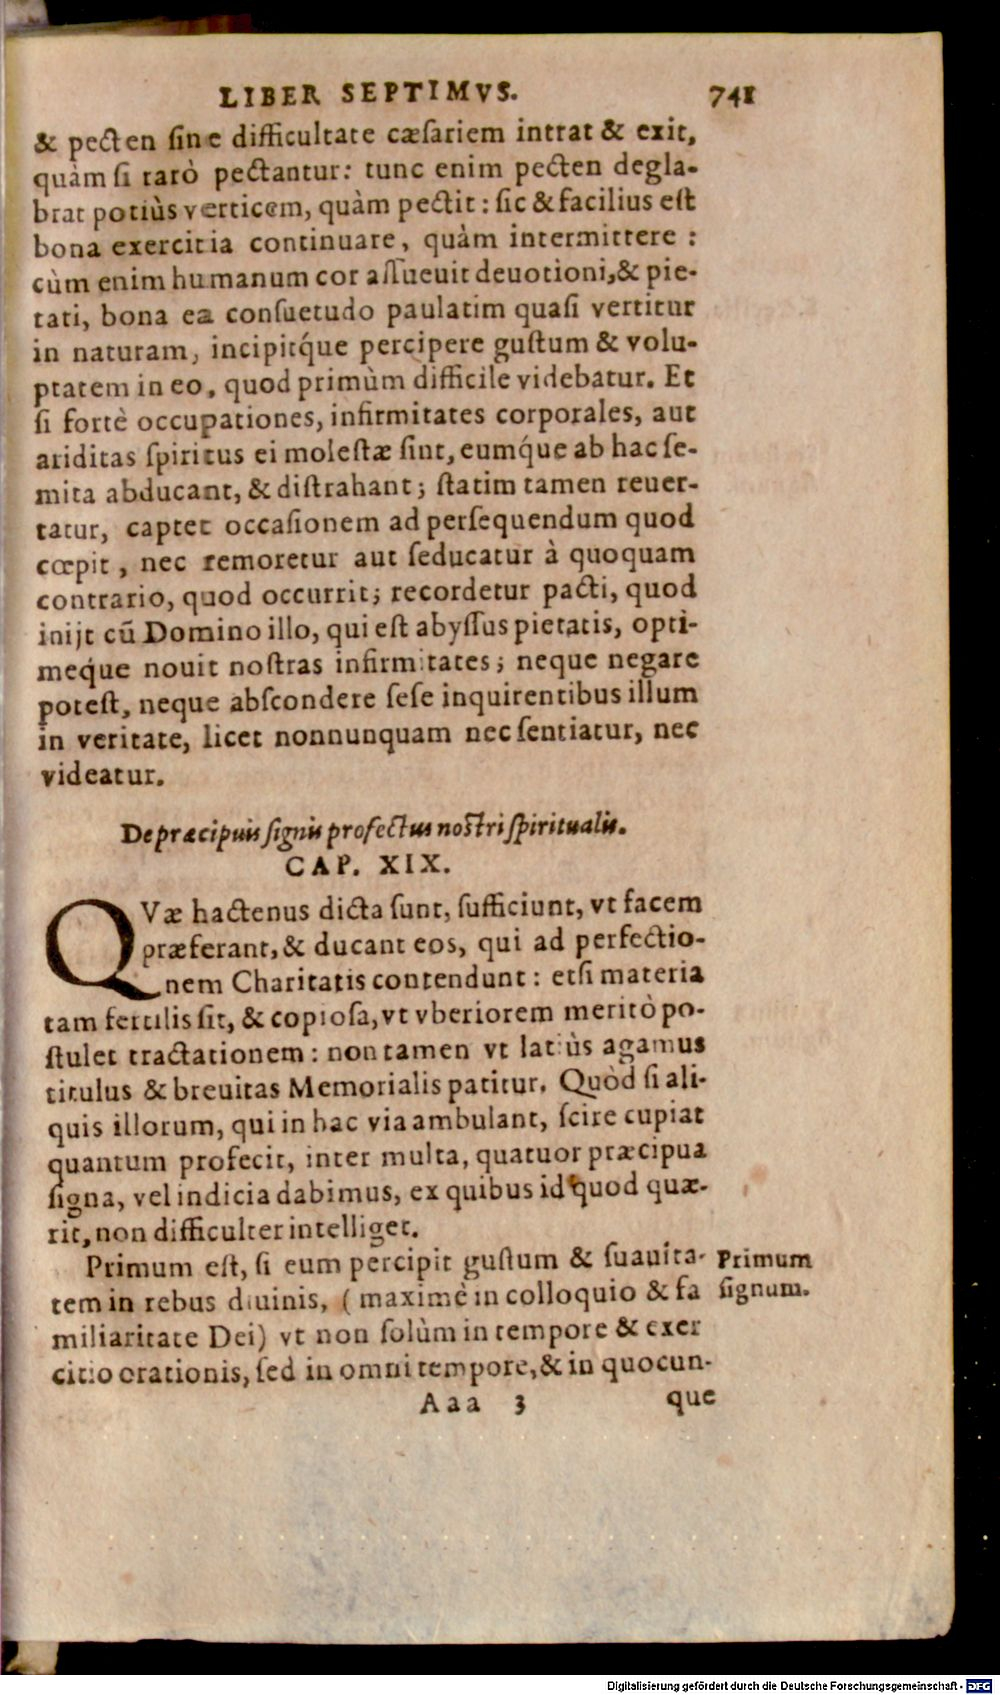 LIBER SEPTIMVS. 741
& pecten ſine difficultate cæſariem intrat & exit,
quàm ſi rarò pectantur: tunc enim pecten degla-
brat potiùs verticem, quàm pectit: ſic & facilius eſt
bona exercitia continuare, quàm intermittere:
cùm enim humanum cor aſſueuit deuotioni, & pie-
tati, bona ea conſuetudo paulatim quaſi vertitur
in naturam, incipitq́ue percipere guſtum & volu-
ptatem in eo, quod primùm difficile videbatur. Et
ſi fortè occupationes, infirmitates corporales, aut
ariditas ſpiritus ei moleſtæ ſint, eumq́ue ab hac ſe-
mita abducant, & diſtrahant; ſtatim tamen reuer-
tatur, captet occaſionem ad perſequendum quod
cœpit, nec remoretur aut ſeducatur à quoquam
contrario, quod occurrit; recordetur pacti, quod
inijt cū Domino illo, qui eſt abyſſus pietatis, opti-
meq́ue nouit noſtras infirmitates; neque negare
poteſt, neque abſcondere ſeſe inquirentibus illum
in veritate, licet nonnunquam nec ſentiatur, nec
videatur.
De præcipuis ſignis profectus noſtri ſpiritualis.
CAP. XIX.
QVæ hactenus dicta ſunt, ſufficiunt, vt facem
præferant, & ducant eos, qui ad perfectio-
nem Charitatis contendunt: etſi materia
tam fertilis ſit, & copioſa, vt vberiorem meritò po-
ſtulet tractationem: non tamen vt latiùs agamus
titulus & breuitas Memorialis patitur. Quòd ſi ali-
quis illorum, qui in hac via ambulant, ſcire cupiat
quantum profecit, inter multa, quatuor præcipua
ſigna, vel indicia dabimus, ex quibus id quod quæ-
rit, non difficulter intelliget.
Primum eſt, ſi eum percipit guſtum & ſuauita-
tem in rebus diuinis, (maximè in colloquio & fa
miliaritate Dei) vt non ſolùm in tempore & exer
citio orationis, ſed in omni tempore, & in quocun-
Primum
ſignum.
Aaa 3 que
Digitalisierung gefördert durch die Deutsche Forschungsgemeinschaft - DFG